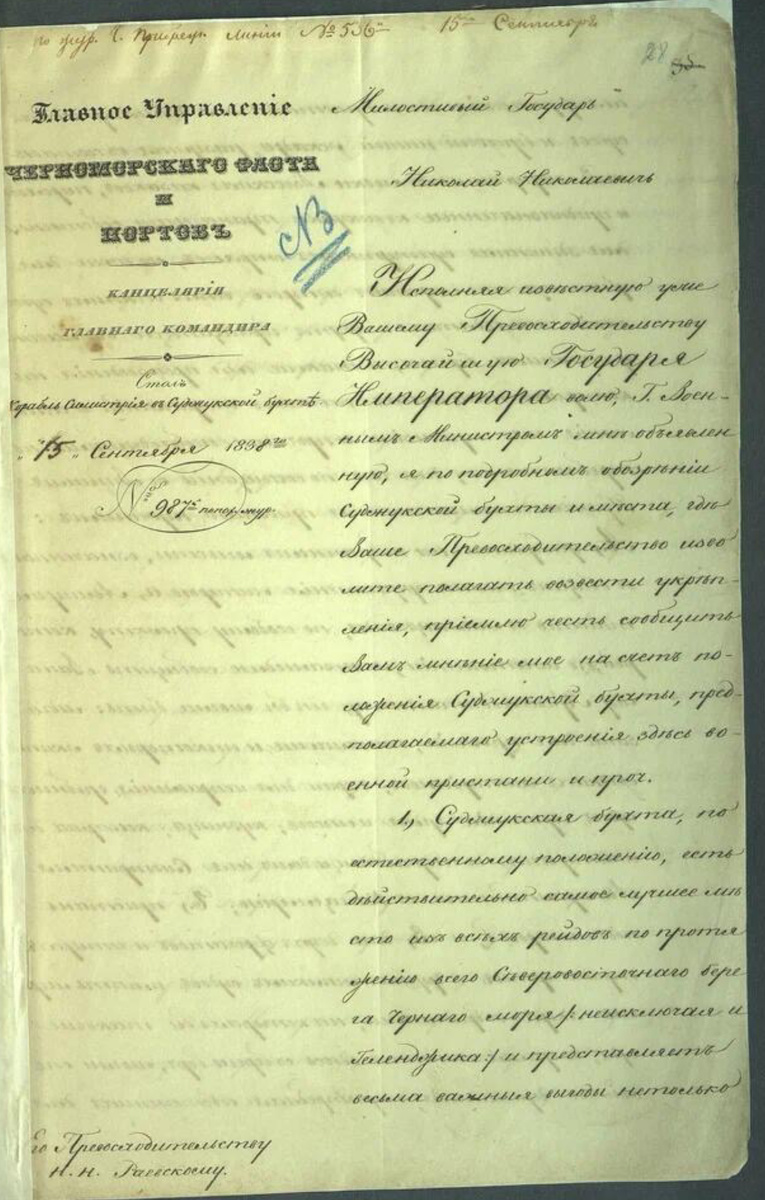 по жур. Ч. Прибреж. линіи № 536й 15го Сентября
28
Главное Управленіе
ЧЕРНОМОРСКАГО ФЛОТА
И
ПОРТОВЪ
КАНЦЕЛЯРІЯ
ГЛАВНАГО КОМАНДИРА
Столъ
Корабль Силистрія въ Суджукской бухтѣ
"15" Сентября 1838го
№ 987й по пох. жур.
NB
Милостивый Государь
Николай Николаевичъ
Исполняя извѣстную уже
Вашему Превосходительству
Высочайшую Государя
Императора волю, Г. Воен-
нымъ Министромъ мнѣ объявлен
ную, я по подробномъ обозрѣніи
Суджукской бухты и мѣста, гдѣ
Ваше Превосходительство изво
лите полагать возвести укрѣп-
ленія, пріемлю честь сообщить
Вамъ мнѣніе мое на счетъ по-
ложенія Суджукской бухты, пред-
полагаемаго устроенія здѣсь во-
енной пристани и проч.
1.) Суджукская бухта, по
естественному положенію, есть
дѣйствительно самое лучшее мѣ
сто изъ всѣхъ рейдовъ по протя
женію всего Сѣверовосточнаго бере
га Чернаго моря /: неисключая и
Геленджика :/ и представляетъ
весьма важныя выгоды нетолько
Его Превосходительству
Н. Н. Раевскому.